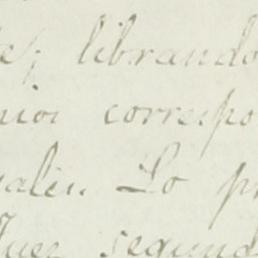 te; librando
nior correspo
valer. Lo pr
Juez segund